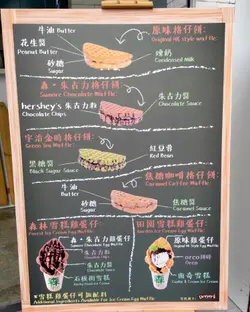 牛油 Butter
原味格仔餅:
Original HK style waffle:
花生醬
Peanut Butter
煉奶
Condensed Milk
砂糖
Sugar
森・朱古力格仔餅:
Summer Chocolate Waffle:
hershey's 朱古力粒
Chocolate Chips
朱古力醬
Chocolate Sauce
宇治金時格仔餅:
Green Tea Waffle:
黑糖醬
Black Sugar Sauce
紅豆蓉
Red Bean
焦糖咖啡格仔餅:
Caramel Coffee Waffle:
牛油
Butter
砂糖
Sugar
焦糖醬
Caramel Sauce
森林雪糕雞蛋仔
Forest Ice Cream Egg Waffle
田園雪糕雞蛋仔
森・朱古力雞蛋仔
Summer Chocolate Egg Waffle
原味雞蛋仔
朱古力粒
Chocolate Chips
朱古力醬
Chocolate Sauce
oreo
Oreo
石板街雪糕
雪糕
*雪糕雞蛋仔可加配料
Additional Ingredients Available For Ice Cream Egg Waffle